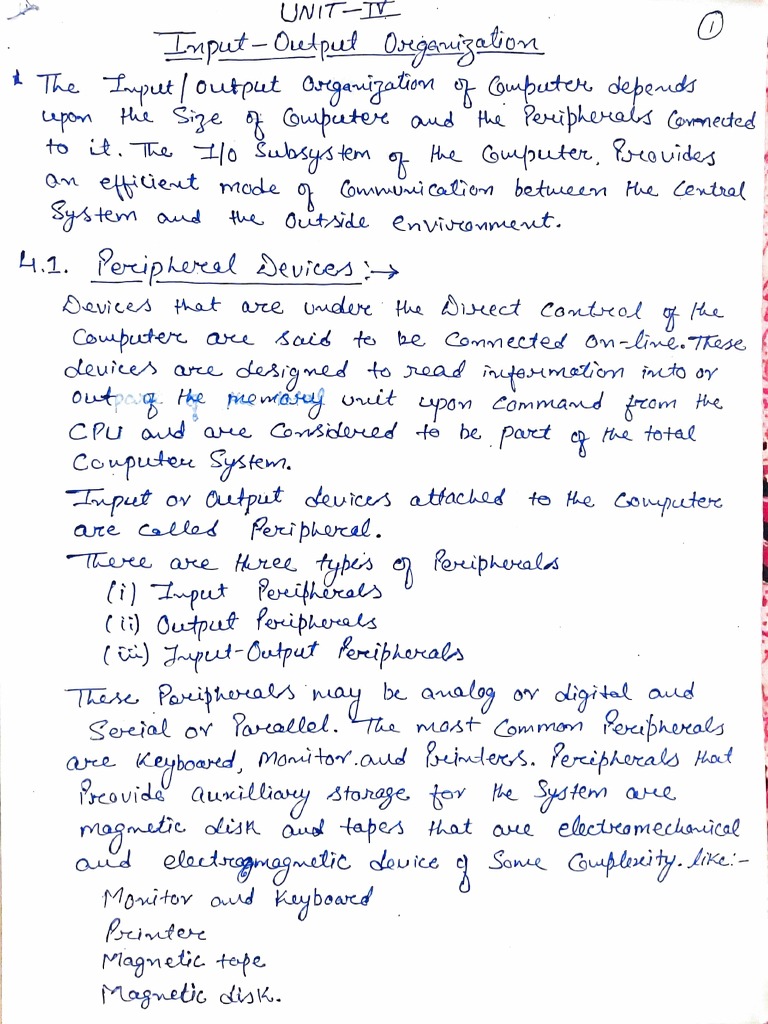 UNIT-IV
1
Input-Output Organization
* The Input/output Organization of Computer depends
upon the Size of Computer and the Peripherals Connected
to it. The I/O Subsystem of the Computer, Provides
an efficient mode of Communication between the Central
System and the outside environment.
4.1. Peripheral Devices:→
Devices that are under the Direct Control of the
Computer are said to be Connected on-line. These
devices are designed to read information into or
out of the memory unit upon command from the
CPU and are Considered to be part of the total
Computer System.
Input or Output devices attached to the Computer
are called Peripheral.
There are three types of Peripherals
(i) Input Peripherals
(ii) Output Peripherals
(iii) Input-Output Peripherals
These Peripherals may be analog or digital and
Serial or Parallel. The most Common Peripherals
are Keyboard, Monitor.and Printers. Peripherals that
Provide auxilliary storage for the System are
magnetic disk and tapes that are electromechanical
and electromagnetic device of Some Complexity. like:-
Monitor and Keyboard
Printer
Magnetic tape
Magnetic disk.